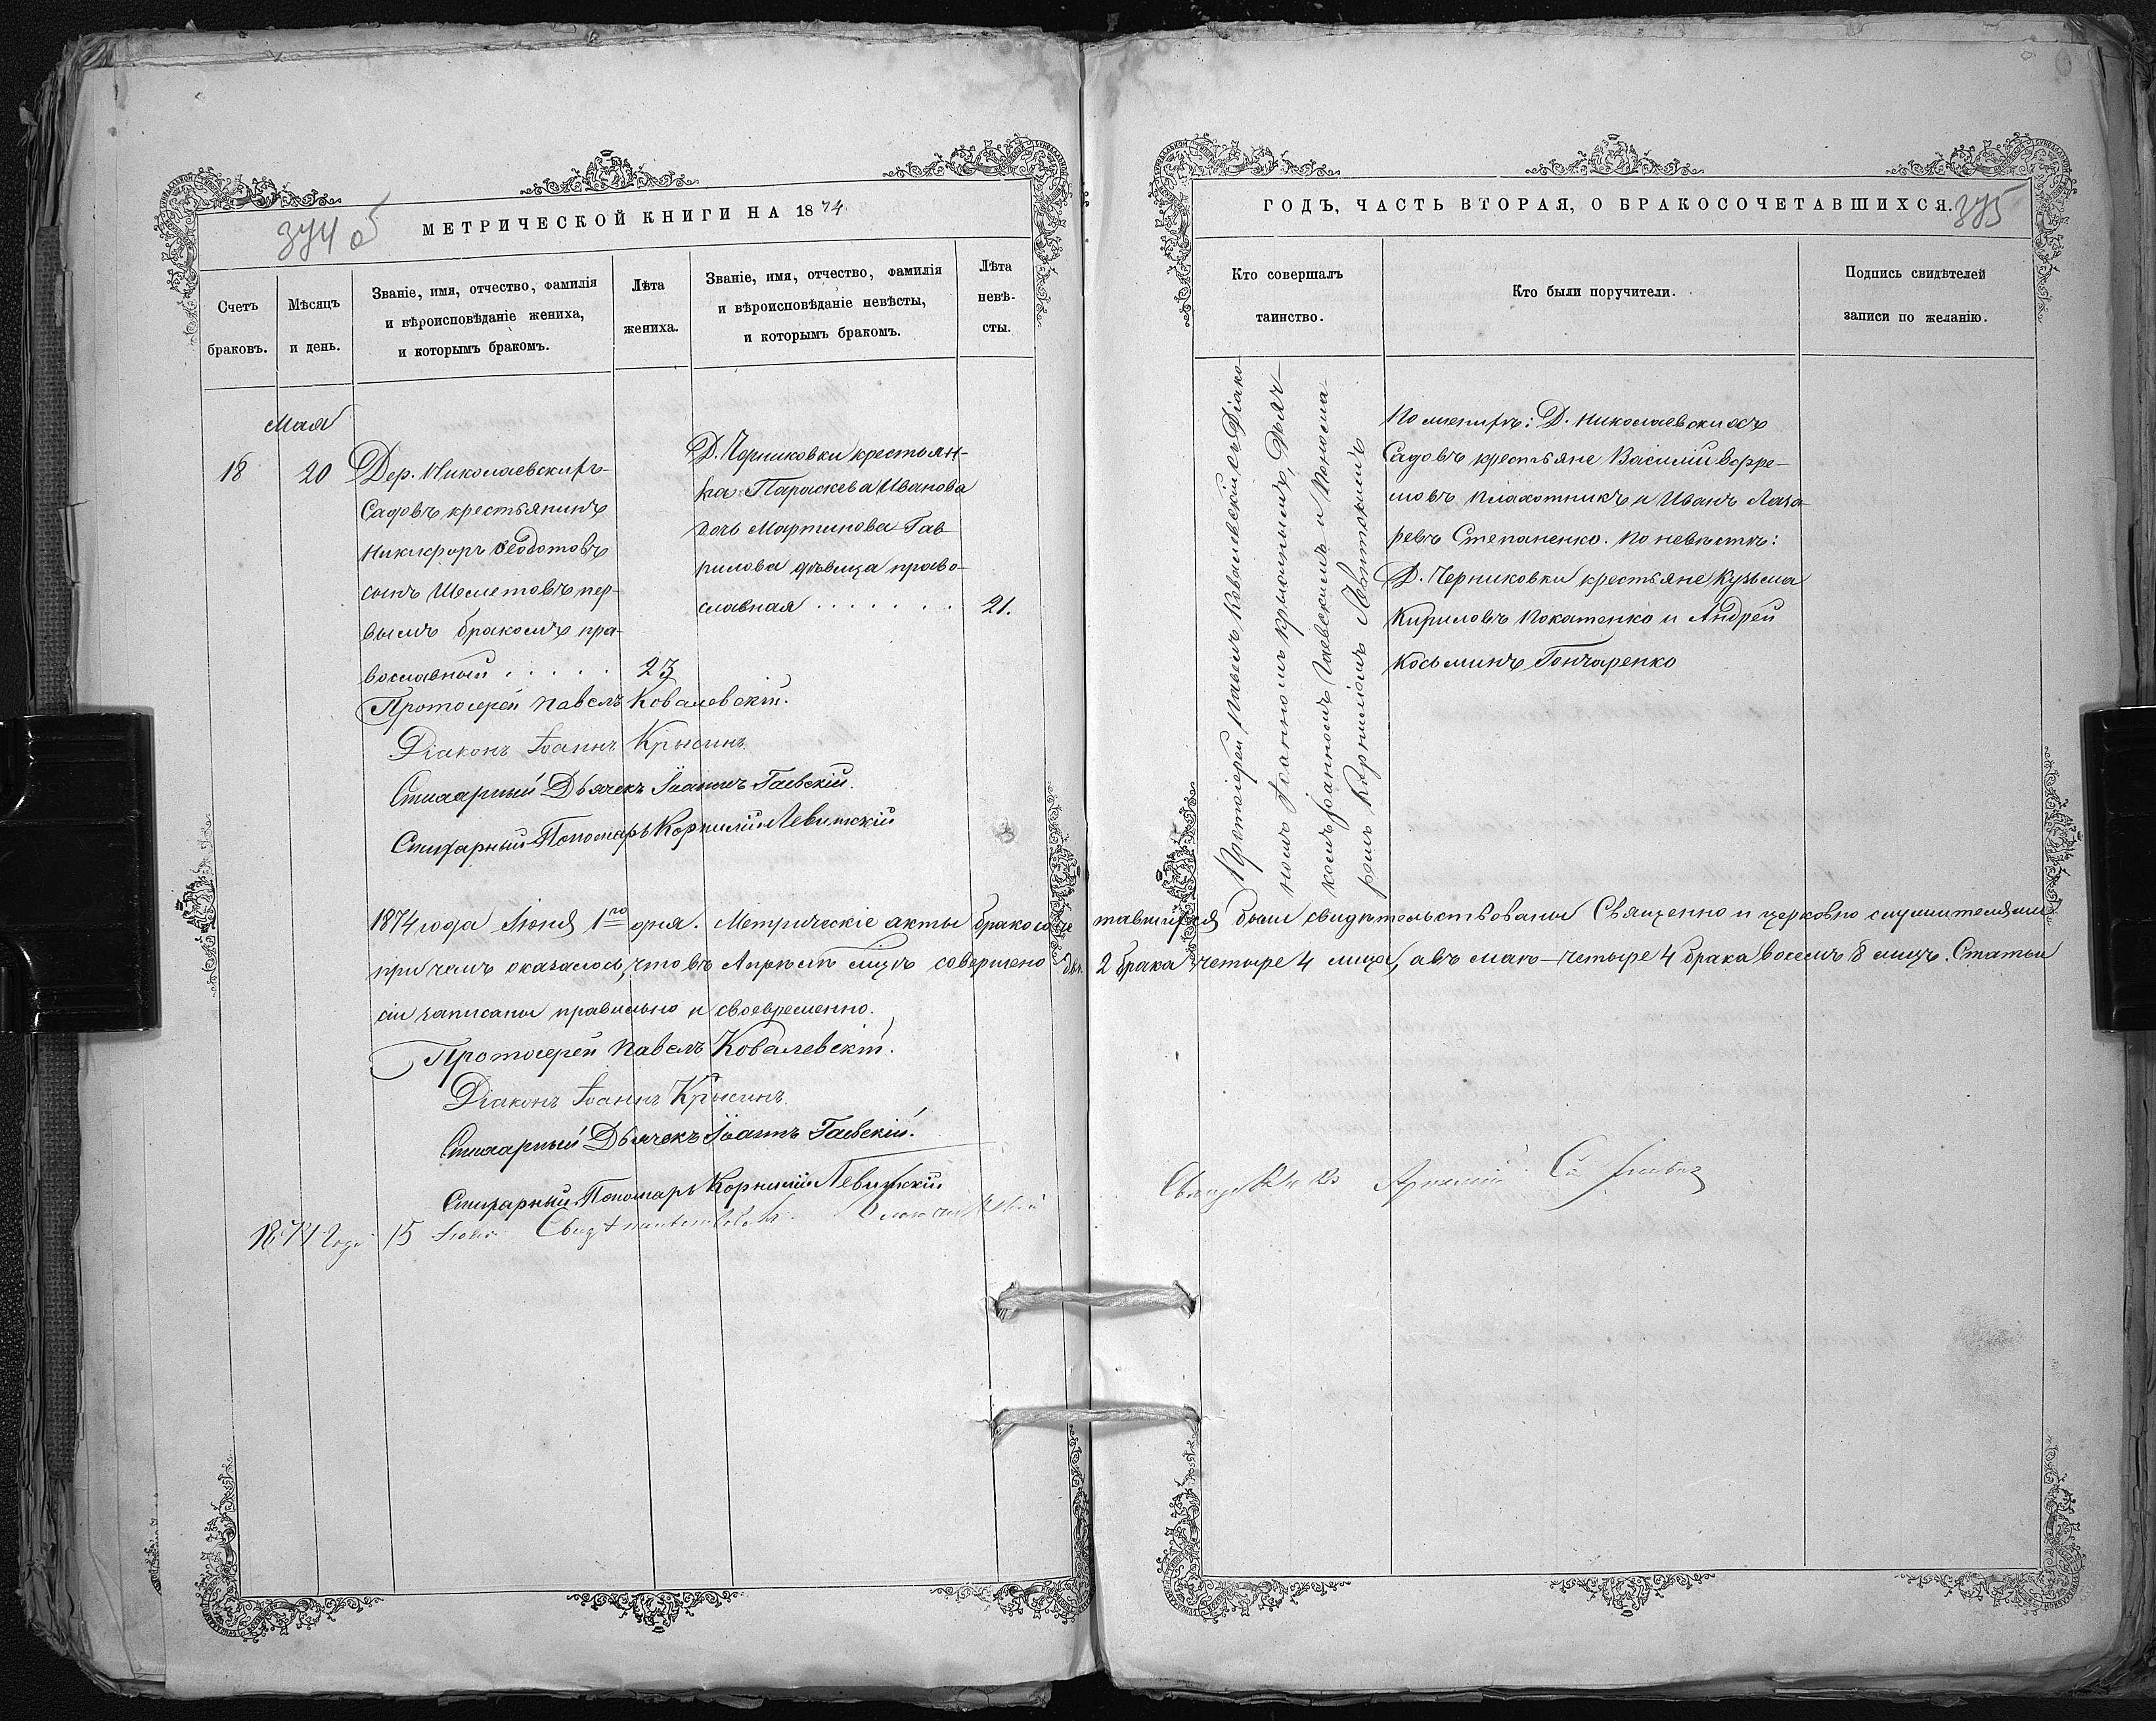 374 об
МЕТРИЧЕСКОЙ КНИГИ НА 1874
Счетъ браковъ.
Мѣсяцъ и день.
Званіе, имя, отчество, фамилія
и вѣроисповѣданіе жениха,
и которымъ бракомъ.
Лѣта жениха.
Званіе, имя, отчество, фамилія
и вѣроисповѣданіе невѣсты,
и которымъ бракомъ.
Лѣта невѣ-
сты.
Мая
18
20
Дер. Николаевскихъ
Садовъ крестьянинъ
Никифоръ Ѳеодотовъ
сынъ Шеметовъ пер-
вымъ бракомъ пра-
вославный . . . . .
23
Д. Черниковки крестьян-
ка Параскева Иванова
дочь Мартинова Гав
рилова дѣвица право-
славная . . . . . . .
21.
Протоіерей Павелъ Ковалевскій.
Діаконъ Іоаннъ Крысинъ.
Стихарный Дьячекъ Іоаннъ Гаевскій.
Стихарный Пономарь Корнилій Левитскій
ГОДЪ, ЧАСТЬ ВТОРАЯ, О БРАКОСОЧЕТАВШИХСЯ.
375
Кто совершалъ
таинство.
Кто были поручители.
Подпись свидѣтелей
записи по желанію.
Протоіерей Павелъ Ковалевскій съ Діако
номъ Іоанномъ Крысинымъ, Дьяч
комъ Іоанномъ Гаевскимъ и Понома
ремъ Корниліемъ Левитскимъ
По женихѣ: Д. Николаевскихъ
Садовъ крестьяне Василій Ефре-
мовъ Плахотникъ и Иванъ Лаза-
ревъ Степаненко. По невѣстѣ:
Д. Черниковки крестьяне Кузьма
Кириловъ Покатенко и Андрей
Косьминъ Гончаренко
1874 года Іюня 1го дня. Метрическіе акты бракосоче тавшихся были свидѣтельствованы Священно и церковно служителями
при чемъ оказалось, что въ Апрѣлѣ мцѣ совершено два 2 брака четыре 4 лица, а въ маѣ — четыре 4 брака восемь 8 лицъ. Статьи
сіи записаны правильно и своевременно.
Протоіерей Павелъ Ковалевскій.
Діаконъ Іоаннъ Крысинъ.
Стихарный Дьячекъ Іоаннъ Гаевскій.
Стихарный Пономарь Корнилій Левитскій
1874 года 15 Іюня